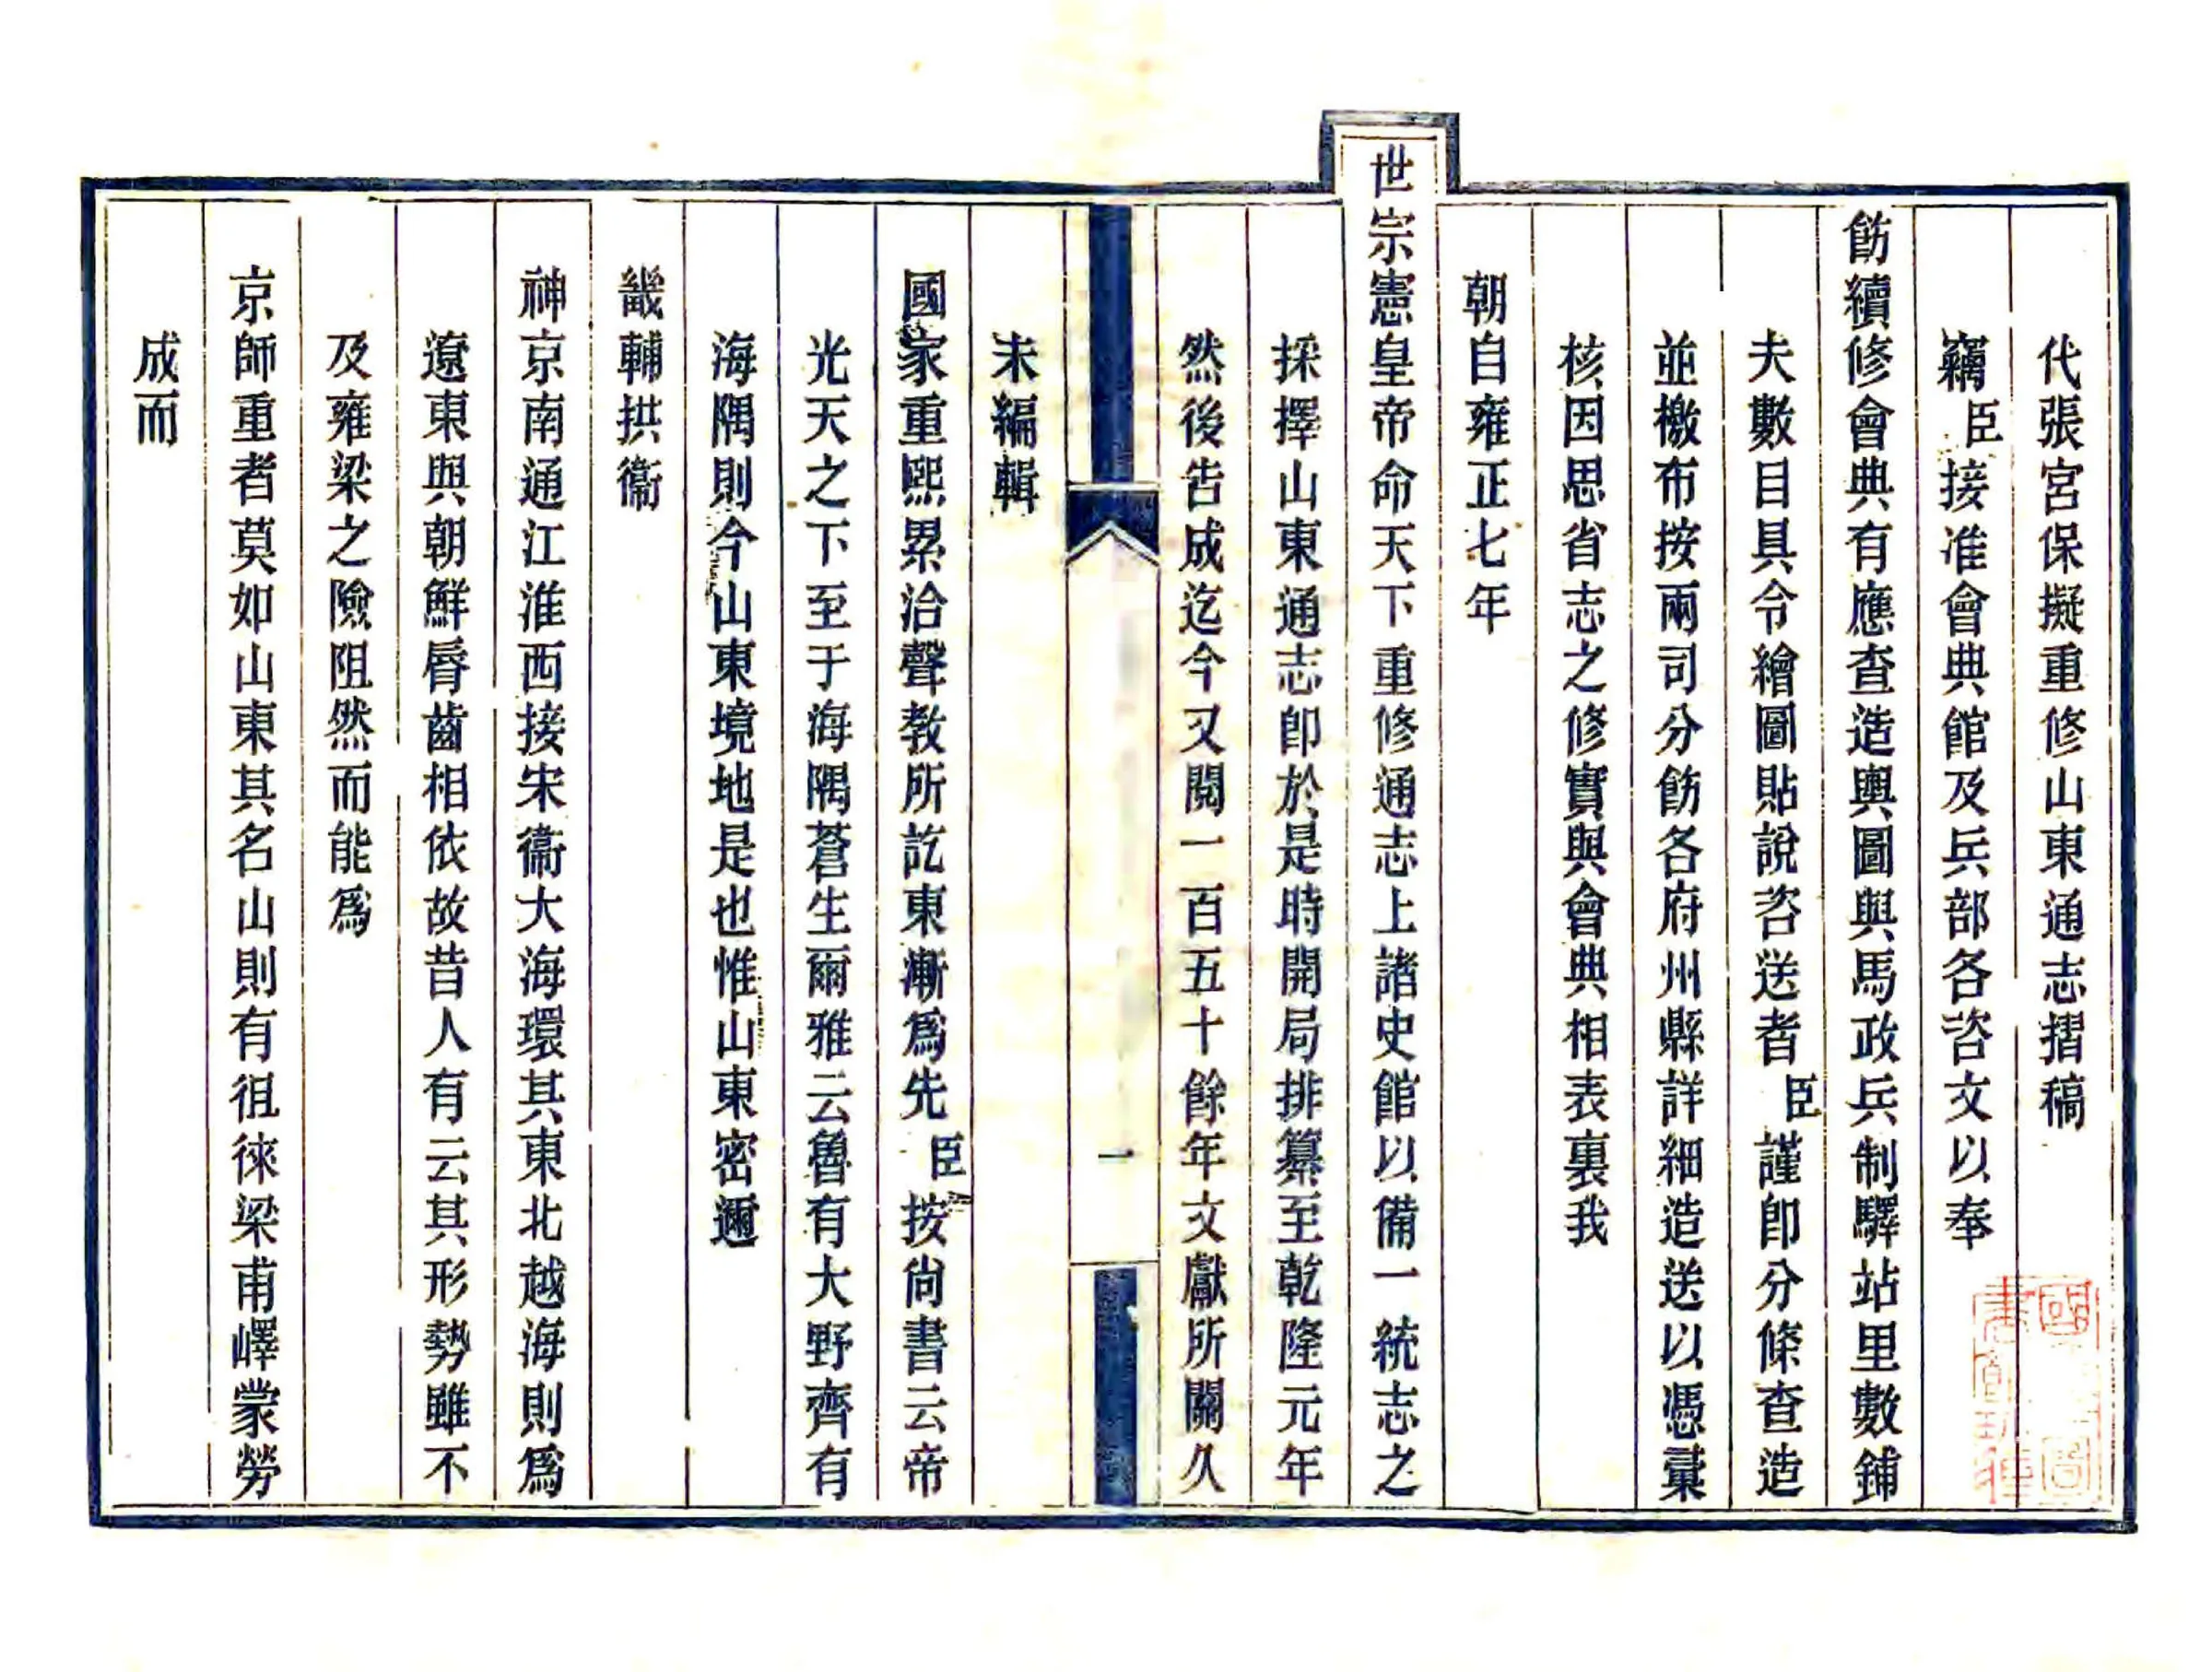 代張宮保擬重修山東通志摺稿
竊臣接准會典館及兵部各咨文以奉
飭續修會典有應查造輿圖與馬政兵制驛站里數鋪
夫數目具令繪圖貼說咨送者臣謹卽分條查造
並檄布按兩司分飭各府州縣詳細造送以憑彙
核因思省志之修實與會典相表裏我
朝自雍正七年
世宗憲皇帝命天下重修通志上諸史館以備一統志之
採擇山東通志卽於是時開局排纂至乾隆元年
然後告成迄今又閱一百五十餘年文獻所關久
一
未編輯
國家重熙累洽聲教所訖東漸爲先臣按尚書云帝
光天之下至于海隅蒼生爾雅云魯有大野齊有
海隅則今山東境地是也惟山東密邇
畿輔拱衞
神京南通江淮西接宋衞大海環其東北越海則爲
遼東與朝鮮脣齒相依故昔人有云其形勢雖不
及雍梁之險阻然而能爲
京師重者莫如山東其名山則有徂徠梁甫嶧蒙勞
成而